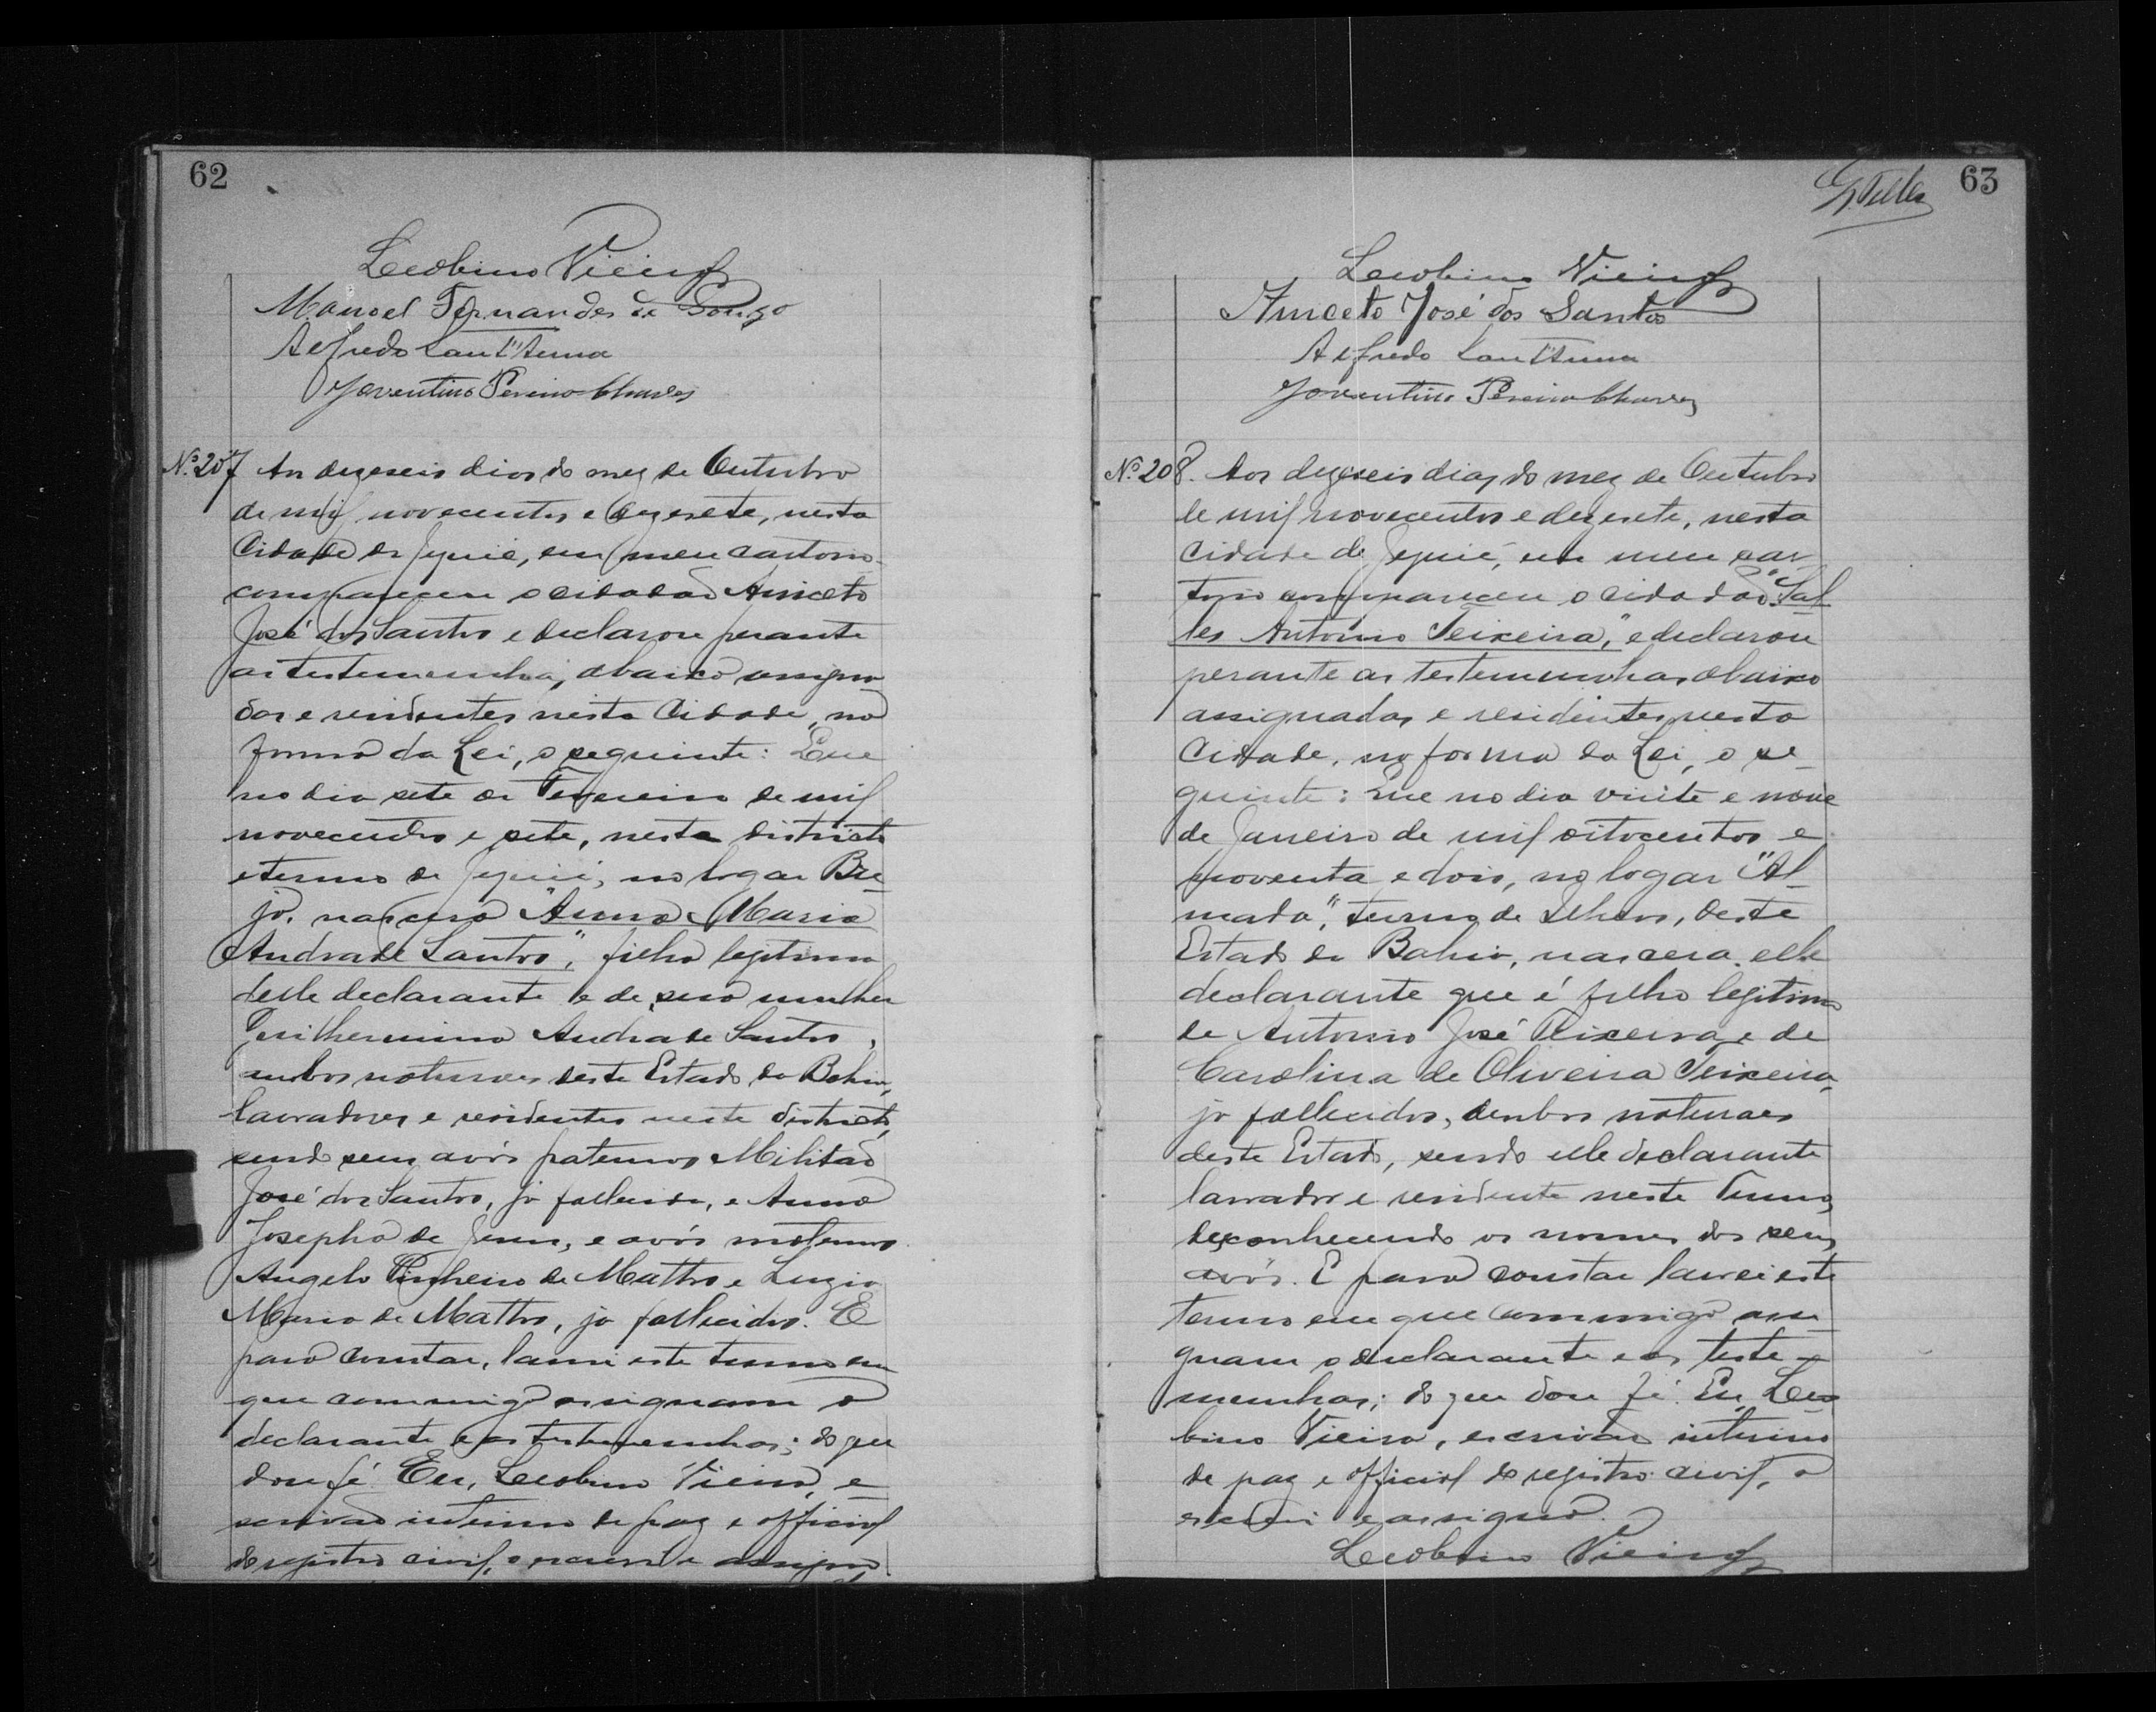 62
Leobino Vieira
Manoel Fernandes de Souza
Alfredo Sant'Anna
Joventino Pereira Chaves
Nº 207 Aos dezeseis dias do mez de Outubro
de mil novecentos e dezesete, nesta
Cidade de Jequié, em meu cartorio
compareceu o cidadão Aniceto
José dos Santos e declarou perante
as testemunhas, abaixo assigna-
das e residentes nesta Cidade, na
forma da Lei, o seguinte: Que
no dia sete de Fevereiro de mil
novecentos e sete, neste districto
e termo de Jequié, no logar Bre-
jo, nascera "Anna Maria
Andrade Santos", filha legitima
delle declarante e de sua mulher
Guilhermina Andrade Santos,
ambos naturaes deste Estado da Bahia,
lavradores e residentes neste districto,
sendo seus avós paternos Militão
José dos Santos, já fallecido, e Anna
Josepha de Jesus, e avós maternos
Angelo Pinheiro de Mattos e Luzia
Maria de Mattos, já fallecidos. E
para constar, lavrei este termo em
que commigo assignam o
declarante e as testemunhas; do que
dou fé. Eu, Leobino Vieira, e-
scrivão interino de paz e official
do registro civil, o escrevi e assigno.
63
G. Telles
Leobino Vieira
Aniceto José dos Santos
Alfredo Sant'Anna
Joventino Pereira Chaves
Nº 208. Aos dezeseis dias do mez de Outubro
de mil novecentos e dezesete, nesta
Cidade de Jequié, em meu car-
torio compareceu o cidadão "Sal-
les Antonio Teixeira", e declarou
perante as testemunhas abaixo
assignadas e residentes nesta
Cidade, na forma da Lei, o se-
guinte: Que no dia vinte e nove
de Janeiro de mil oitocentos e
noventa e dois, no logar "Al-
mada", termo de Ilheos, deste
Estado da Bahia, nascera elle
declarante que é filho legitimo
de Antonio José Teixeira e de
Carolina de Oliveira Teixeira,
já fallecidos, ambos naturaes
deste Estado, sendo elle declarante
lavrador e residente neste Termo,
desconhecendo os nomes dos seus
avós. E para constar lavrei este
termo em que commigo assi-
gnam o declarante e as teste-
munhas; do que dou fé. Eu, Leo-
bino Vieira, escrivão interino
de paz e official do registro civil, o
escrevi e assigno.
Leobino Vieira